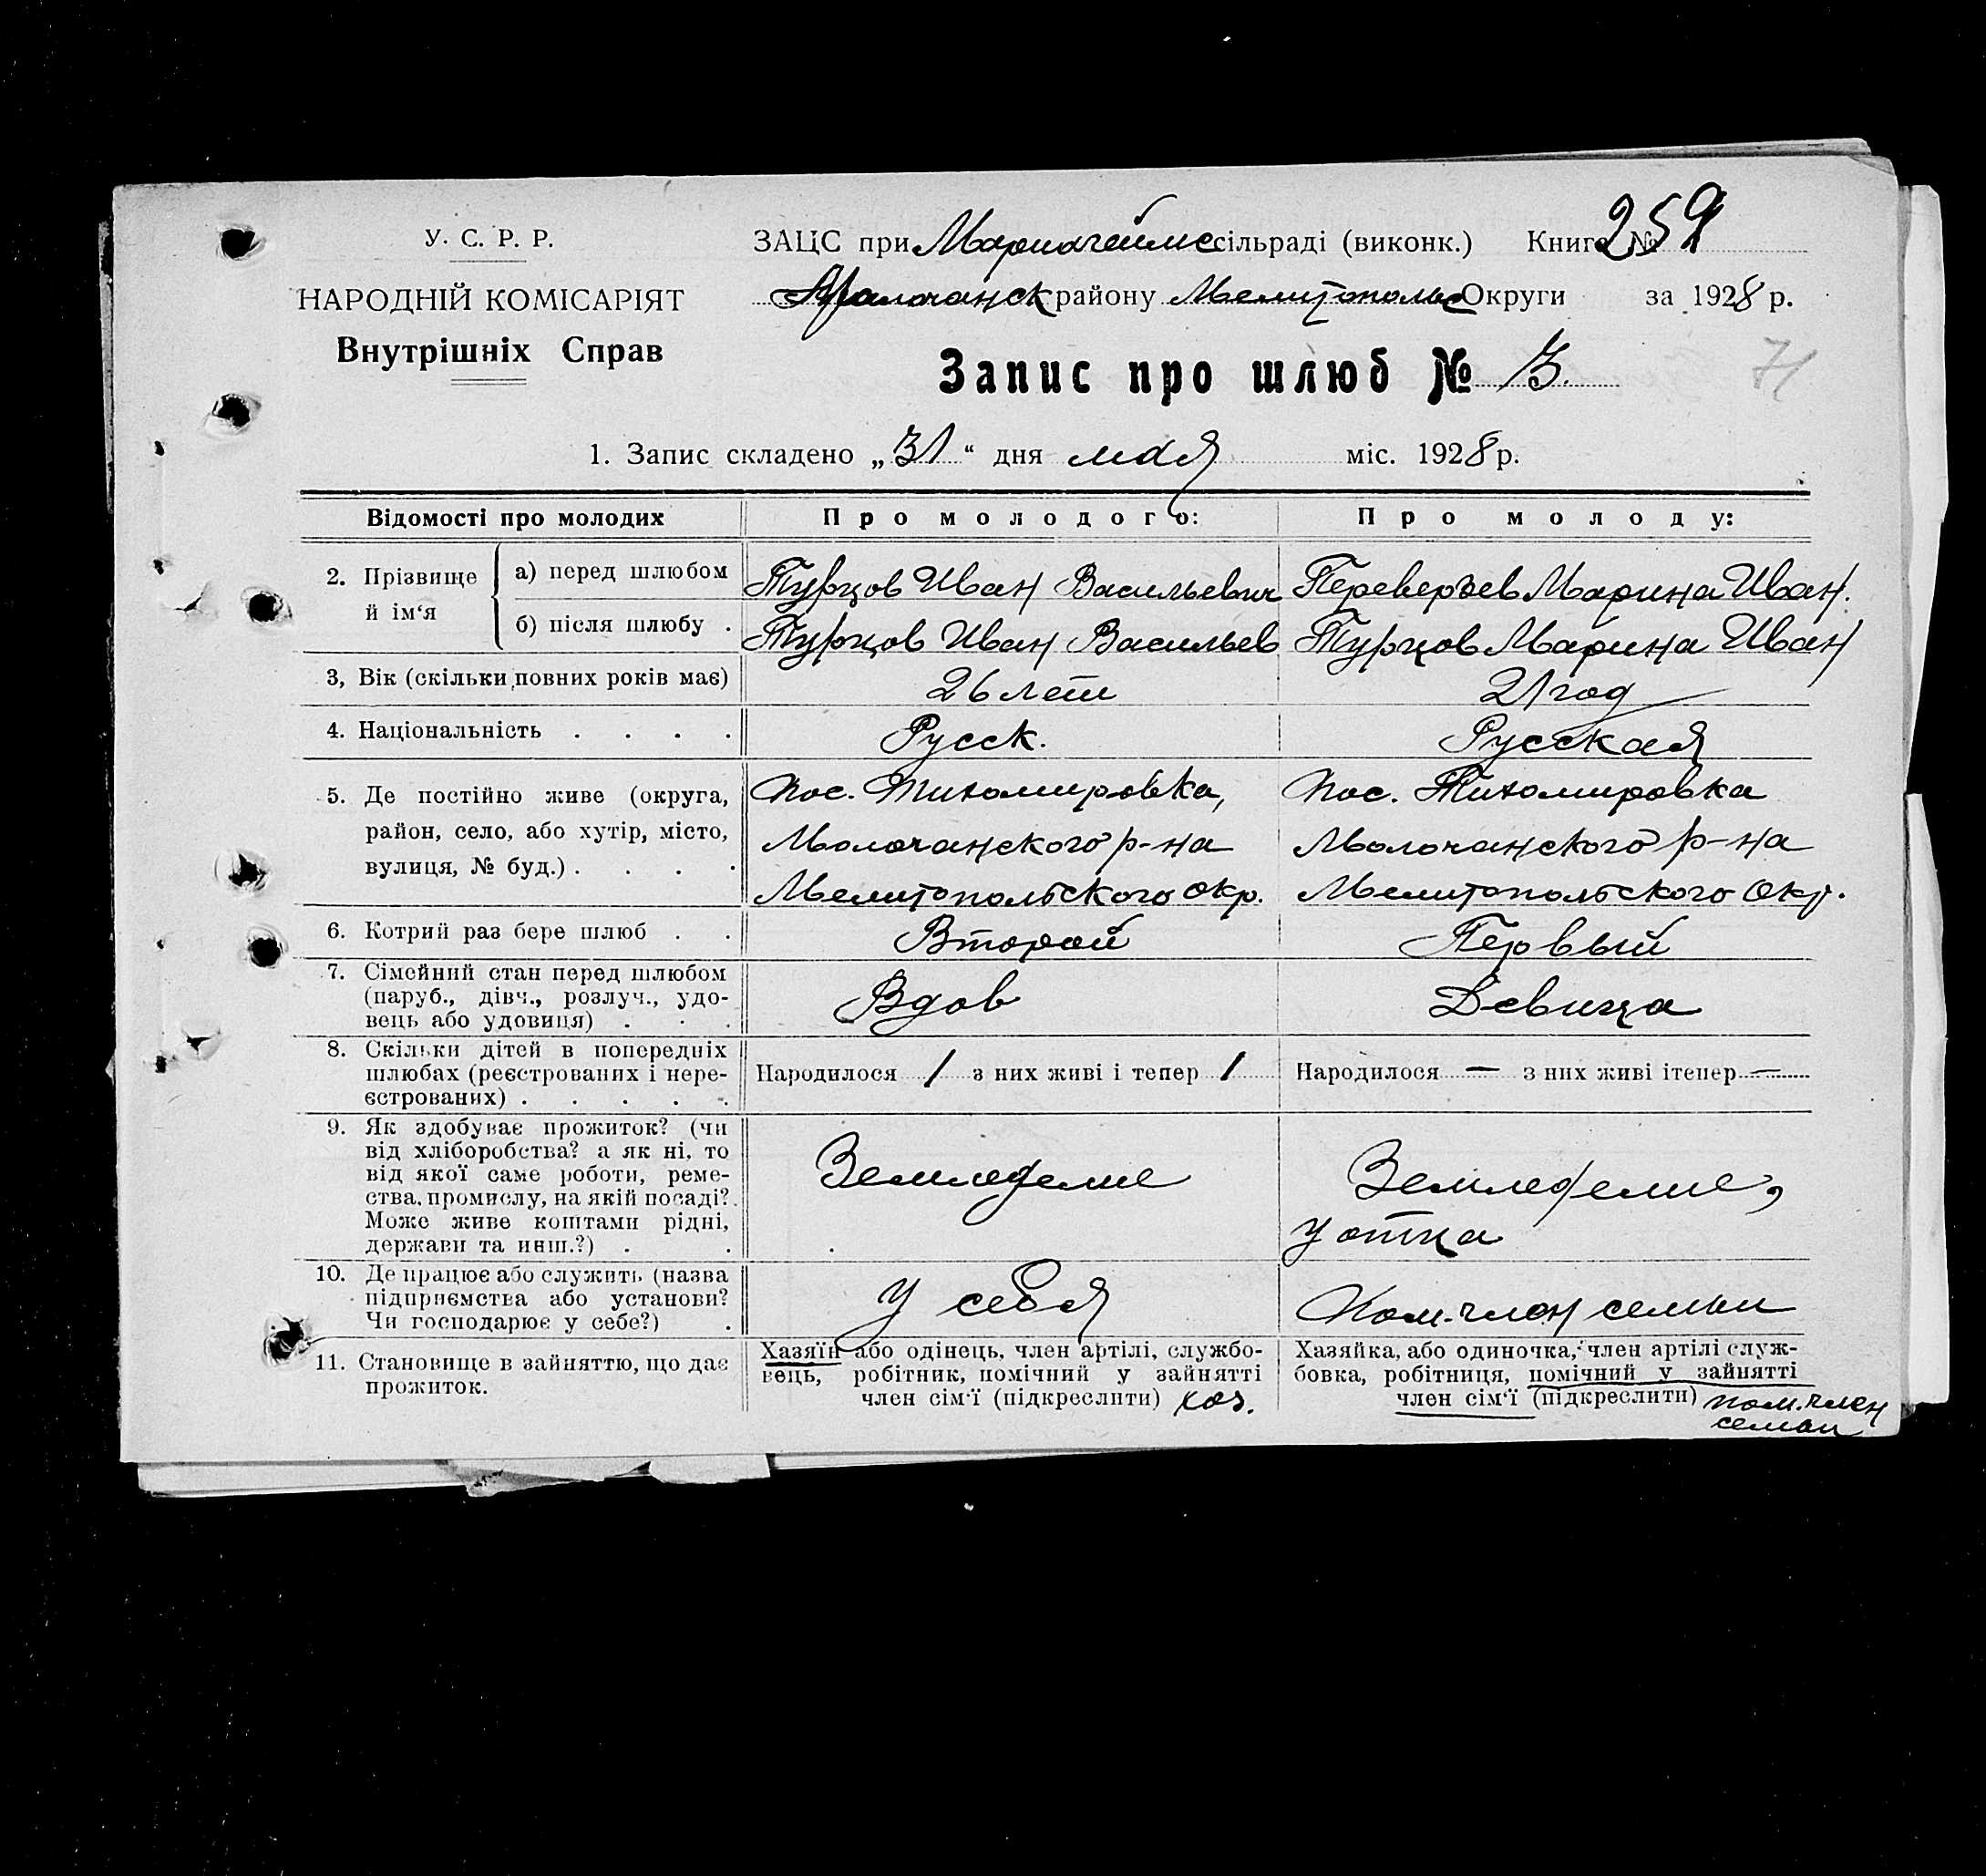 У. С. Р. Р.
НАРОДНІЙ КОМІСАРІЯТ
Внутрішніх Справ
ЗАЦС при Мариагеймс сільраді (виконк.) Книга № 259
Молочанск району Мелитопольс Округи за 1928 р.
Запис про шлюб № 3.
71
1. Запис складено „31“ дня мая міс. 1928 р.
Відомості про молодих
Про молодого:
Про молоду:
2. Прізвище й ім‘я
а) перед шлюбом
Турцов Иван Васильевич
Переверзев Марина Иван.
б) після шлюбу .
Турцов Иван Васильев
Турцов Марина Иван
3, Вік (скільки повних років має)
26 лет
21 год
4. Національність . . . .
Русск.
Русская
5. Де постійно живе (округа,
район, село, або хутір, місто,
вулиця, № буд.) . . . .
пос. Тихомировка,
Молочанского р-на
Мелитопольского окр.
пос. Тихомировка
Молочанского р-на
Мелитопольского окр.
6. Котрий раз бере шлюб . .
Второй
Первый
7. Сімейний стан перед шлюбом
(паруб., дівч., розлуч., удо-
вець або удовиця) . . .
Вдов
Девица
8. Скільки дітей в попередніх
шлюбах (реєстрованих і нере-
єстрованих) . . . . .
Народилося 1 з них живі і тепер 1
Народилося — з них живі ітепер —
9. Як здобуває прожиток? (чи
від хліборобства? а як ні, то
від якої саме роботи, реме-
ства, промислу, на якій посаді?
Може живе коштами рідні,
держави та инш.?) . .
Земледелие
Земледелие,
у отца
10. Де працює або служить (назва
підприємства або установи?
Чи господарює у себе?) .
У себя
Пом. член семьи
11. Становище в зайняттю, що дає
прожиток.
Хазяїн або одінець, член артілі, службо-
вець, робітник, помічний у зайнятті
член сім‘ї (підкреслити) хоз.
Хазяйка, або одиночка, член артілі служ-
бовка, робітниця, помічний у зайнятті
член сім‘ї (підкреслити) пом. член
семьи